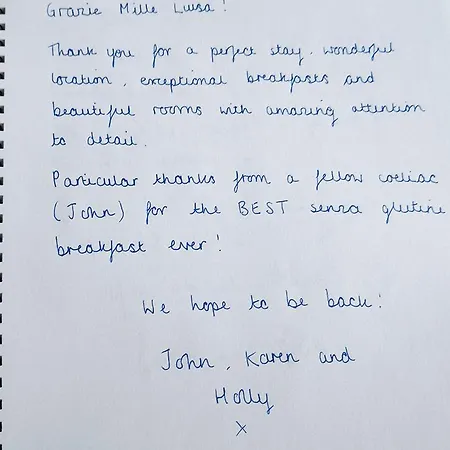 Grazie Mille Luisa!
Thank you for a perfect stay. wonderful
location, exceptional breakfasts and
beautiful rooms with amazing attention
to detail.
Particular thanks from a fellow coeliac
(John) for the BEST senza glutine
breakfast ever!
We hope to be back!
John, Karen and
Holly
X